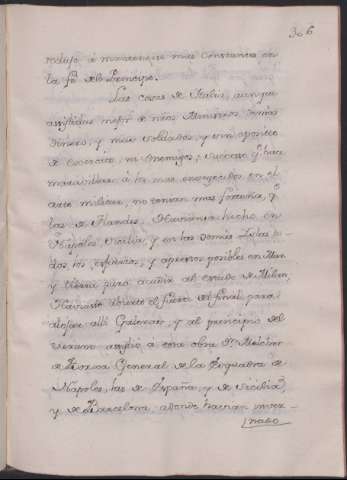 306
redujo á mantenerse mas Constancia en
la fé de el Principe.
Las cosas de Italia, aunque
assistidas mejor de otros Ministros, y mas
dinero, y mas soldados, y sin oposito
de Exercito, ni Enemigos, sucesso q.e hara
maravillar á los mas envegecidos en el
arte militar, no tenian mas fortuna, q.e
las de Flandes. Havianse hecho en
Napoles, Sicilia, y en las demas Islas to-
dos los esfuerzos, y aprestos posibles en Mar
y tierra para acudir al estado de Milan,
Haviase abierto el fuerte del final, para
alojar alli Galeras, y al principio del
Verano assistió a esta obra D.n Melchor
de Borxa General de la Esquadra de
Napoles, las de España, y de Sicilia,
y de Barcelona, adonde havian inver-
nado